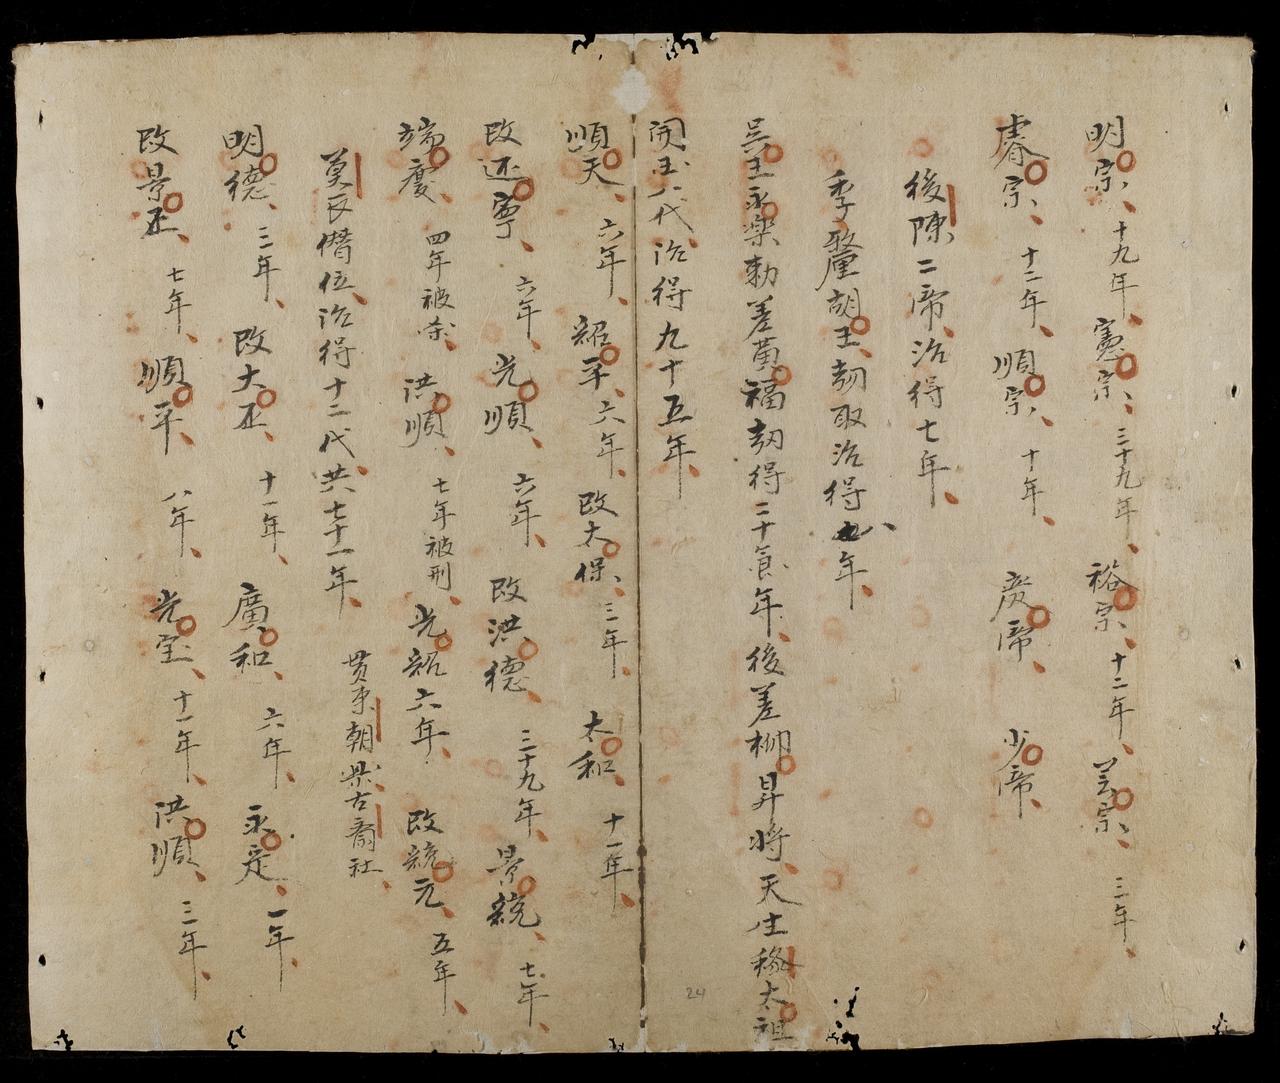 明宗、十九年、憲宗、三十九年、裕宗、十二年、芸宗、三年、
睿宗、十二年、順宗、十年、慶帝、少帝、
後陳二帝、治得七年、
季犛胡王、刼取治得八年、
吳王永樂勅差黃福刼得二十年、後差柳昇將、天生太祖
開王八代治得九十五年、
順天、六年、紹平、六年、改大保、三年、太和、十一年、
改延寧、六年、光順、六年、改洪德、三十九年、景統、七年、
端慶、四年被杀、洪順、七年被刑、光紹六年、改統元、五年、
莫氏僭位、治得十二代共七十一年、貫東朝古齋社、
明德、三年、改大正、十一年、廣和、六年、永定、一年、
改景正、七年、順平、八年、光宝、十一年、洪順、三年、
24